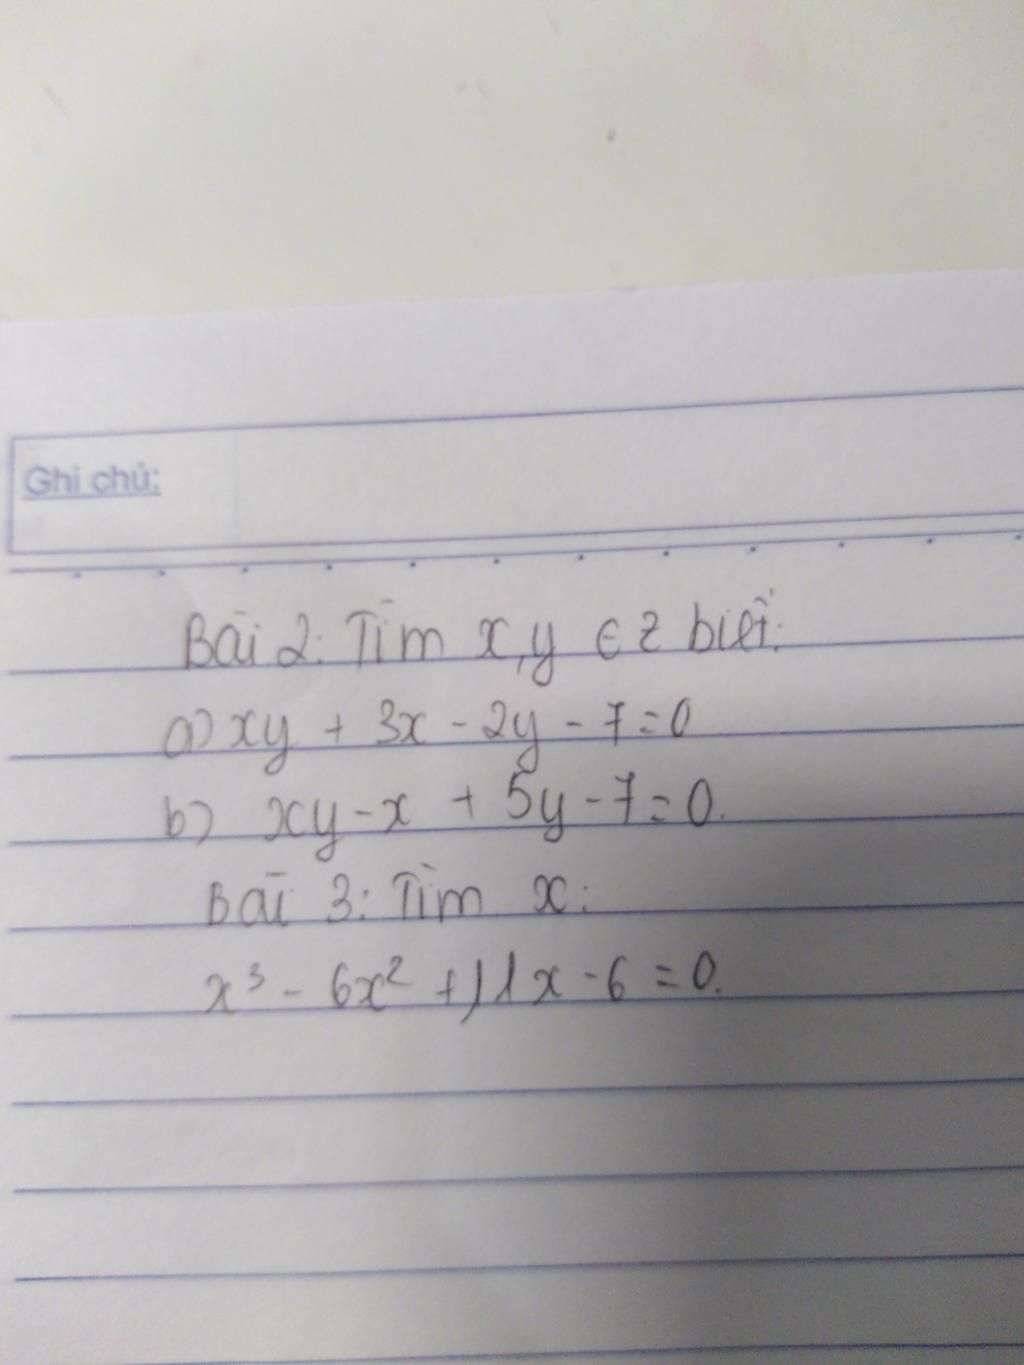 Ghi chú:
Bài 2: Tìm x, y ∈ Z biết:
a) xy + 3x - 2y - 7 = 0
b) xy - x + 5y - 7 = 0.
Bài 3: Tìm x:
x³ - 6x² + 11x - 6 = 0.